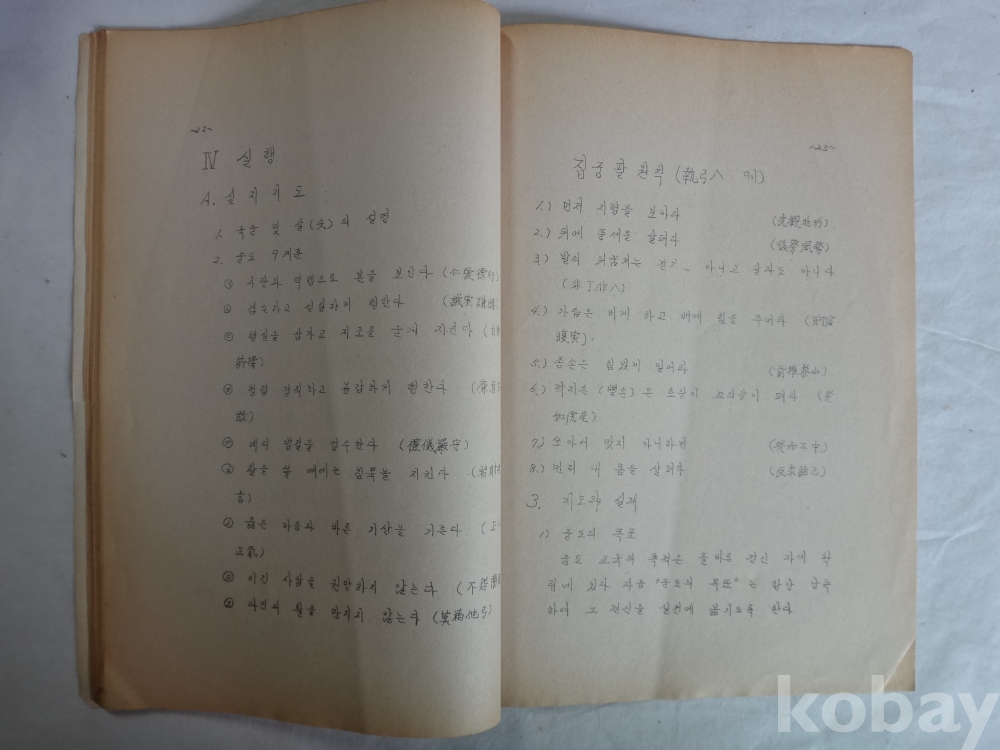 ~22~
Ⅳ 실행
A. 실지지도
1. 국궁 및 살(矢)의 설명
2. 궁도 9계훈
① 사랑과 덕행으로 본을 보인다 (仁愛德行
② 겸손하고 신실하게 행한다 (誠実謙
③ 행실을 삼가고 지조를 굳게 지킨다 (
節操)
④ 청렴 겸직하고 용감하게 행한다 (廉
敢)
⑤ 예의 범절을 엄수한다 (禮儀嚴守)
⑥ 활을 쏠 때에는 침묵을 지킨다 (
言)
⑦ 마음과 바른 기상을 기른다 (正
正氣)
⑧ 이긴 사람을 원망하지 않는다 (不怨勝
⑨ 타인의 활을 당기지 않는다 (莫 他弓)
~23~
집궁팔원칙 (執弓八 )
1.) 먼저 지형을 보아라 (先觀地形)
2.) 뒤에 풍세를 살펴라 (後察風勢)
3) 발의 위치는 아니고 팔자도 아니다
(非丁非八)
4.) 가슴은 비게 하고 배에 힘을 주어라 (胸虛
腹実).
5.) 줌손은 힘있게 밀어라 (前推泰山)
6.) 깍지손 ( ) 은 호랑이 꼬리같이 펴라 (發
如虎尾)
7.) 쏘아서 맞지 아니하면 (發而不中)
8.) 내 몸을 살펴라 (反求諸己)
3. 지도와 실제
1) 궁도의 목표
궁도 교육의 목적은 올바른 정신 자세 확
립에 있다 다음 "궁도의 목표"는
하여 그 정신을 실천에 옮기도록 한다
kobay